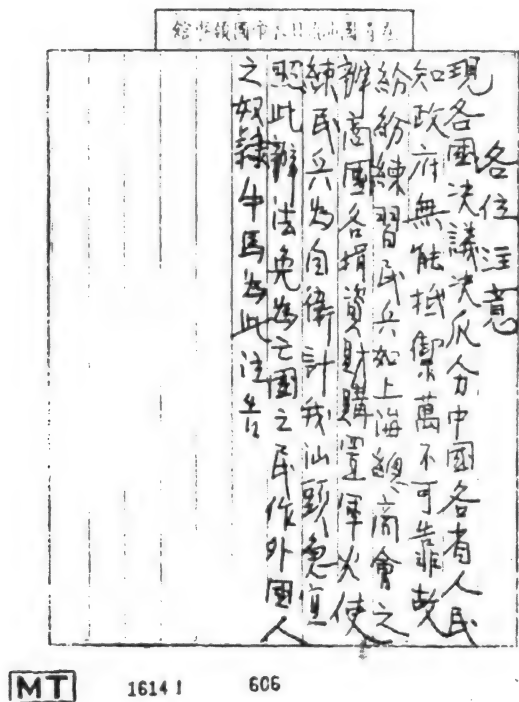 在汕頭大日本帝國領事館
各位注意
現各國决議决瓜分中國各省人民
知政府無能抵禦萬不可靠故
紛紛練習民兵如上海總商會之
辦商團各捐資財購置軍火使
練民兵為自衛計我汕頭急宜
照此辦法免為亡國之民作外國人
之奴隸牛馬為此注告
MT 16141 606